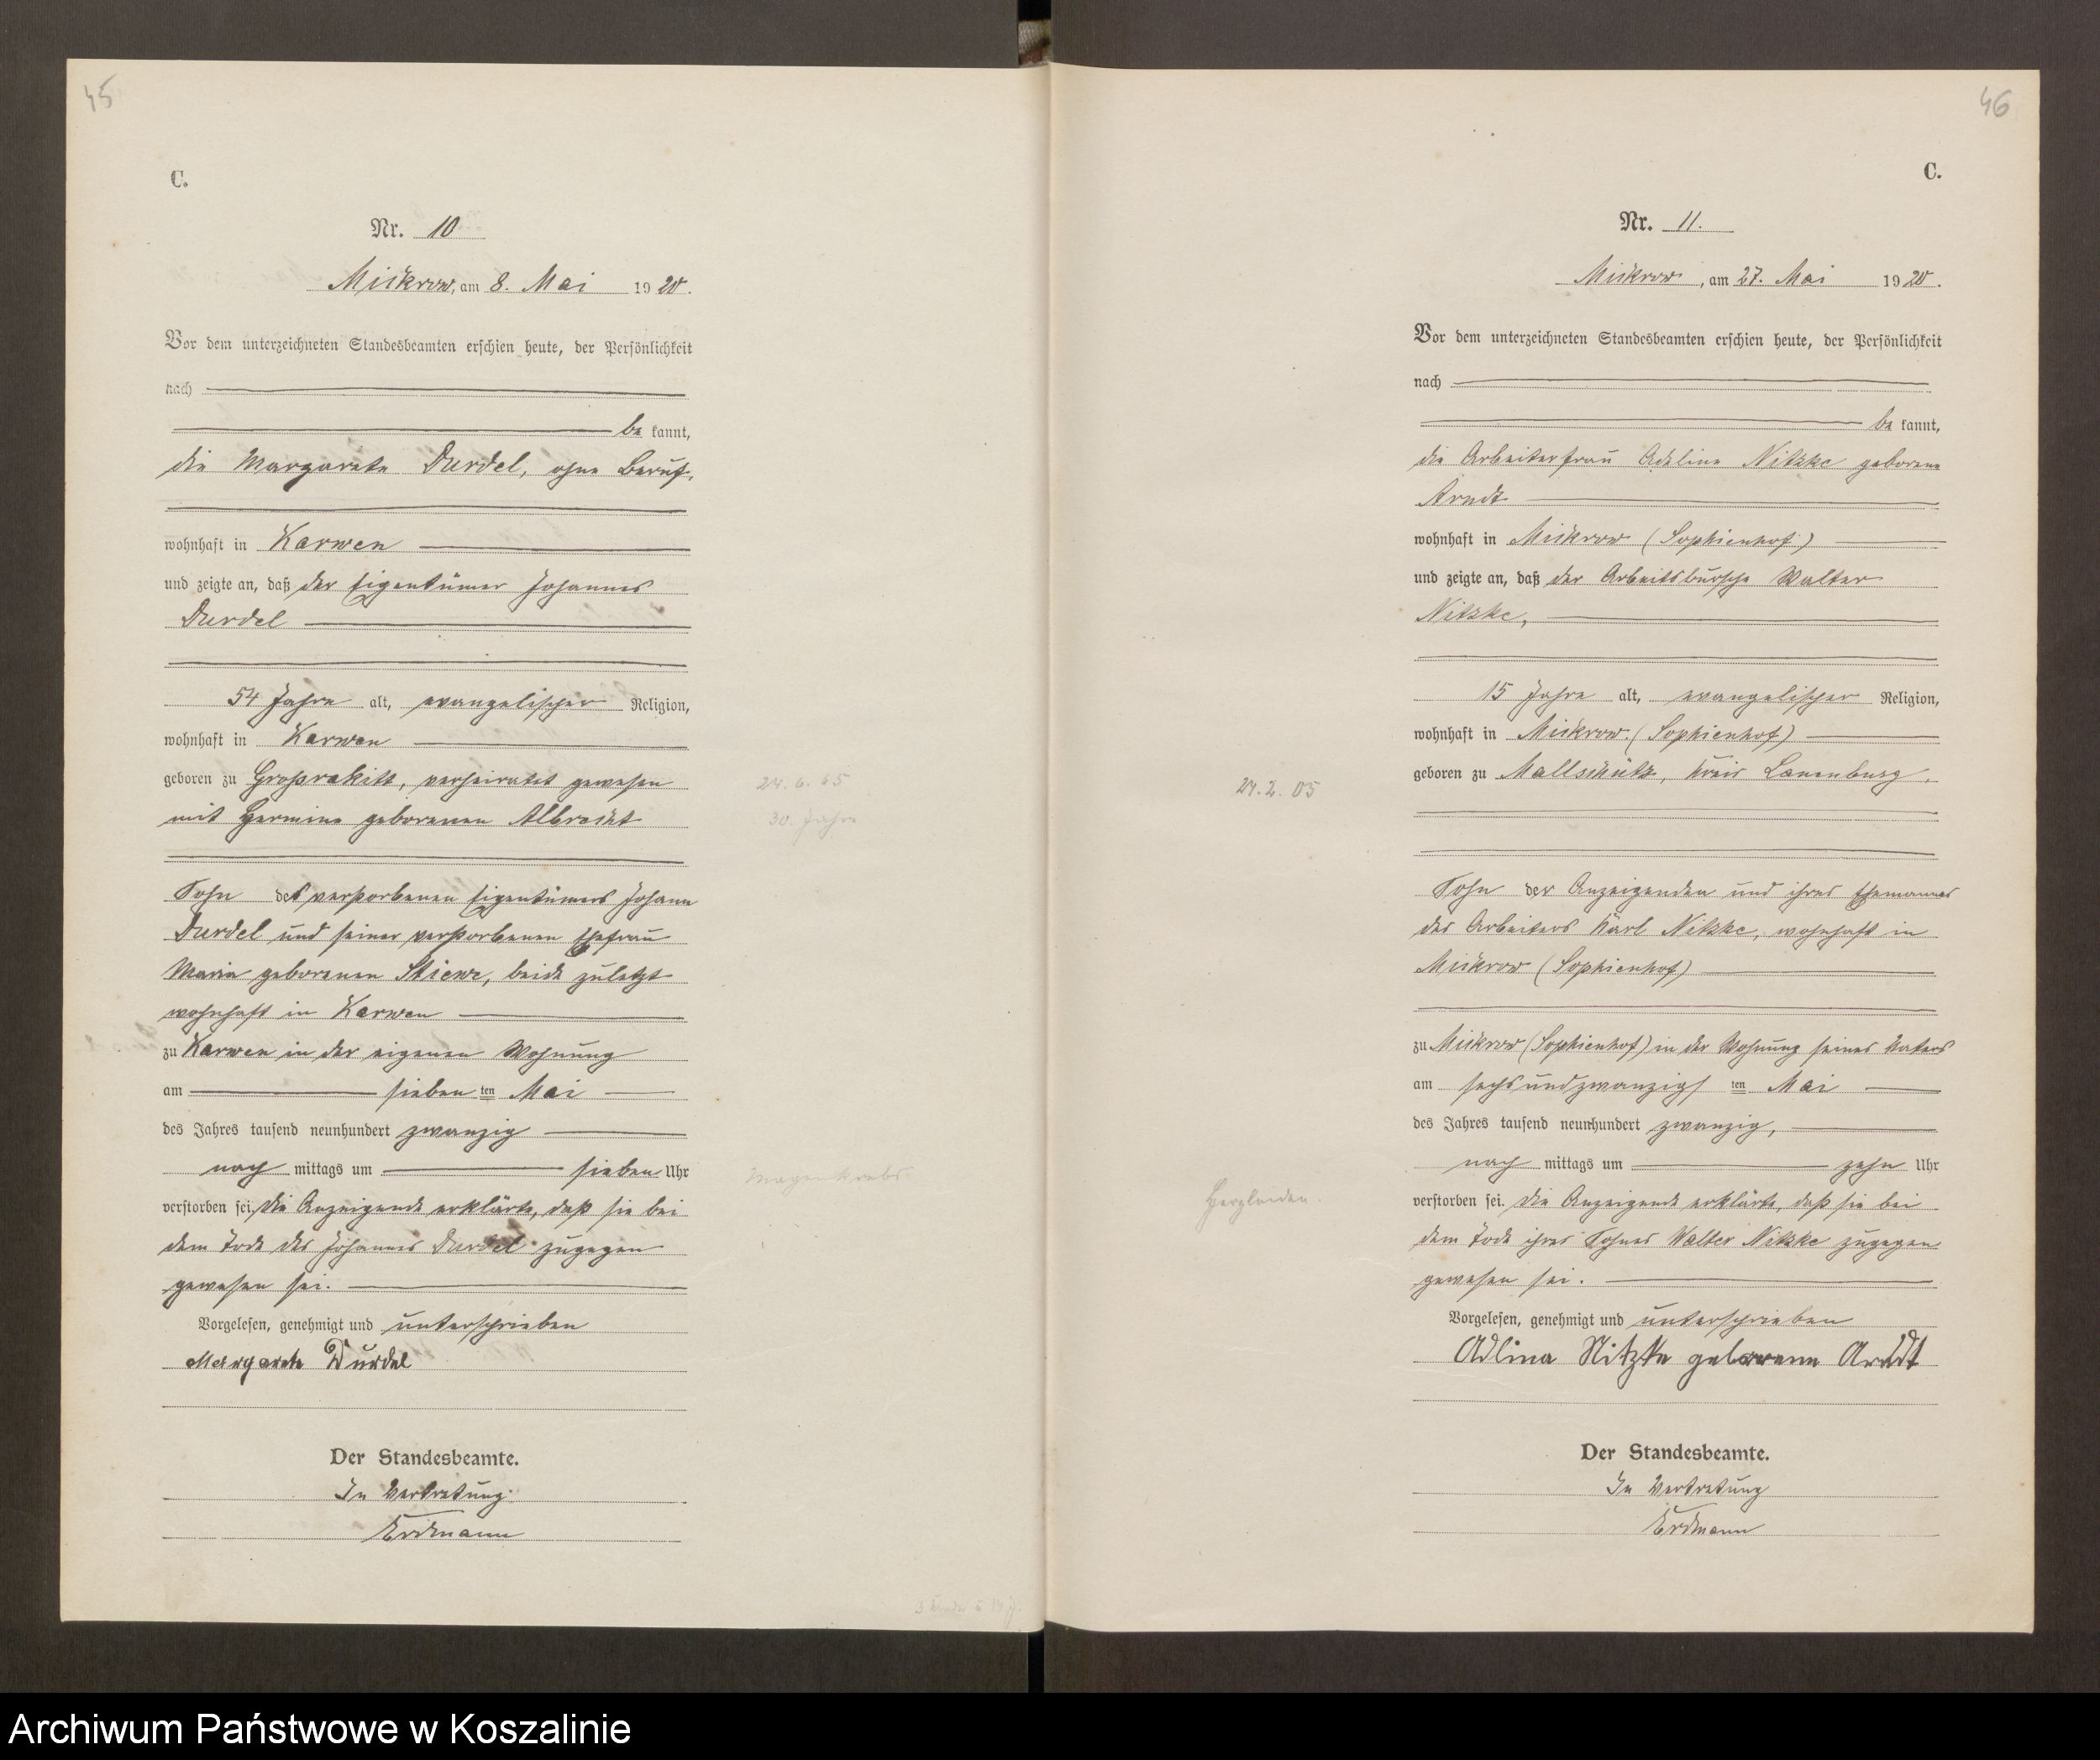 45
C.
Nr. 10
Mickrow, am 8. Mai 1920.
Vor dem unterzeichneten Standesbeamten erschien heute, der Persönlichkeit
nach
be kannt,
die Margarete Durdel, ohne Beruf,
wohnhaft in Karwen
und zeigte an, daß der Eigentümer Johannes
Durdel
54 Jahre alt, evangelischer Religion,
wohnhaft in Karwen
geboren zu Großrakitt, verheiratet gewesen
mit Hermine geborenen Albrecht
24. 6. 65
30. Jahre
Sohn des verstorbenen Eigentümers Johann
Durdel und seiner verstorbenen Ehefrau
Maria geborenen Stiewe, beide zuletzt
wohnhaft in Karwen
zu Karwen in der eigenen Wohnung
am sieben ten Mai
des Jahres tausend neunhundert zwanzig
nach mittags um sieben Uhr
Magenkrebs
verstorben sei. Die Anzeigende erklärte, daß sie bei
dem Tode des Johannes Durdel zugegen
gewesen sei.
Vorgelesen, genehmigt und unterschrieben
Margarete Durdel
Der Standesbeamte.
In Vertretung.
Erdmann
46
C.
Nr. 11.
Mickrow, am 27. Mai 1920.
Vor dem unterzeichneten Standesbeamten erschien heute, der Persönlichkeit
nach
be kannt,
die Arbeiterfrau Adeline Nitzke geborene
Arndt
wohnhaft in Mickrow (Sophienhof)
und zeigte an, daß der Arbeitsbursche Walter
Nitzke,
15 Jahre alt, evangelischer Religion,
wohnhaft in Mickrow (Sophienhof)
geboren zu Mallschütz, Kreis Lauenburg,
24. 2. 05
Sohn der Anzeigenden und ihres Ehemannes
des Arbeiters Karl Nitzke, wohnhaft in
Mickrow (Sophienhof)
zu Mickrow (Sophienhof) in der Wohnung seines Vaters
am sechsundzwanzigs ten Mai
des Jahres tausend neunhundert zwanzig,
nach mittags um zehn Uhr
Herzleiden.
verstorben sei. Die Anzeigende erklärte, daß sie bei
dem Tode ihres Sohnes Walter Nitzke zugegen
gewesen sei.
Vorgelesen, genehmigt und unterschrieben
Adlina Nitzke geborene Arndt
Der Standesbeamte.
In Vertretung
Erdmann
Archiwum Państwowe w Koszalinie